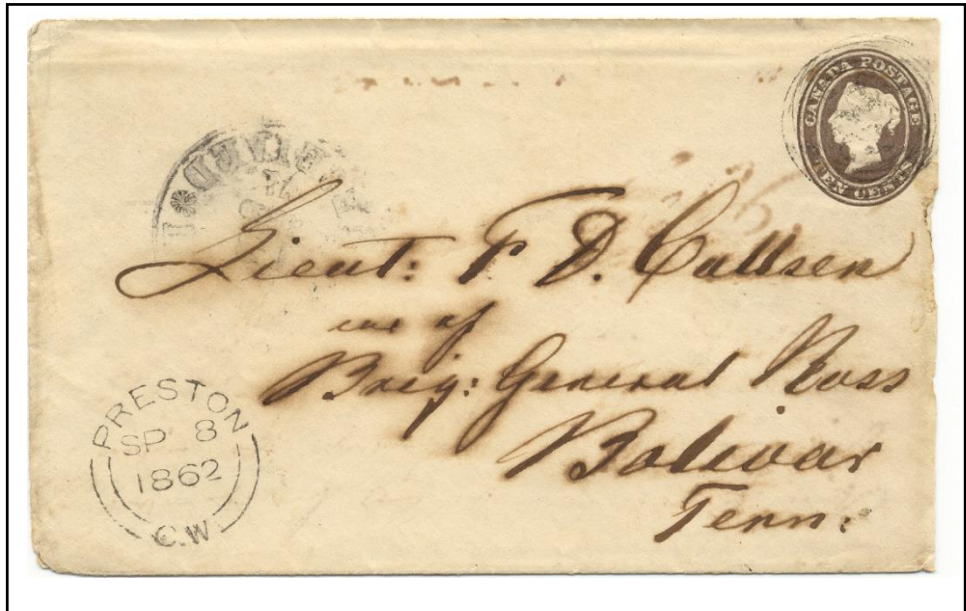 CANADA POSTAGE
TEN CENTS
Lieut: F D.
Brig: General Ross
Bolivar
Tenn:
PRESTON
SP 8
1862
C.W